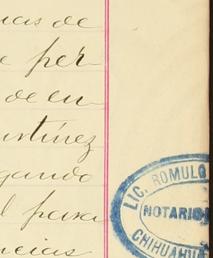 cias de
e per
de en
artínez
gando
l para
ncias
LIC. ROMULO
NOTARIO
CHIHUAHU